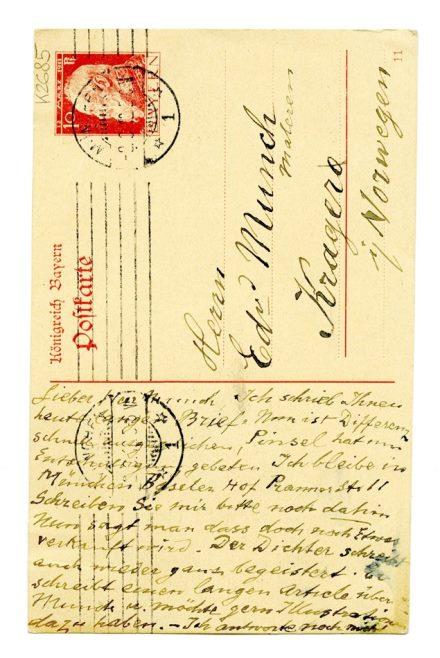 K2685
10
BAYERN
MÜNCHEN
1
11
Königreich Bayern
Postkarte
Herrn
Edv. Munch
Maleren
Kragerø
i/ Norwegen
Lieber Herr Munch Ich schrieb Ihnen
heute Brief. Nun ist Differenz
schnell Pinsel hat um
gebeten Ich bleibe in
Basler Hof Prannerstr 11
Schreiben Sie mir bitte noch dahin
Nun sagt man dass doch noch Etwas
verkauft wird. Der Dichter schreibt
auch wieder ganz begeistert. Er
schreibt einen langen Article über
Munch u. möchte gern Illustration
dazu haben. – Ich antworte noch nicht
MÜNCHEN
1